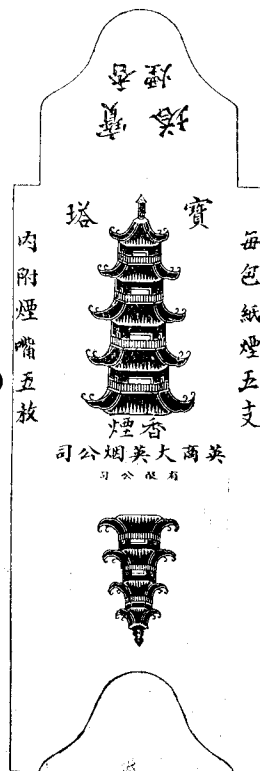 寶塔
香煙
寶塔
每包紙煙五支
內附煙嘴五枚
香煙
英商大英烟公司
有限公司